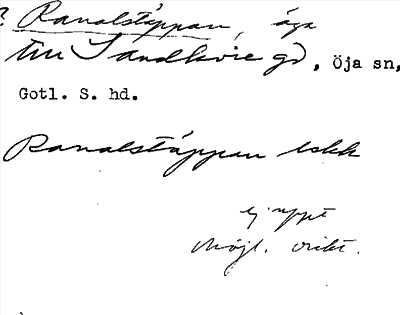 ? Ranalstäppan, äga
till Sandkvie gd, Öja sn,
Gotl. S. hd.
Ranalstäppan
ej uppt
Möjl.